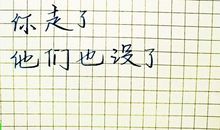 你走了
他们也没了